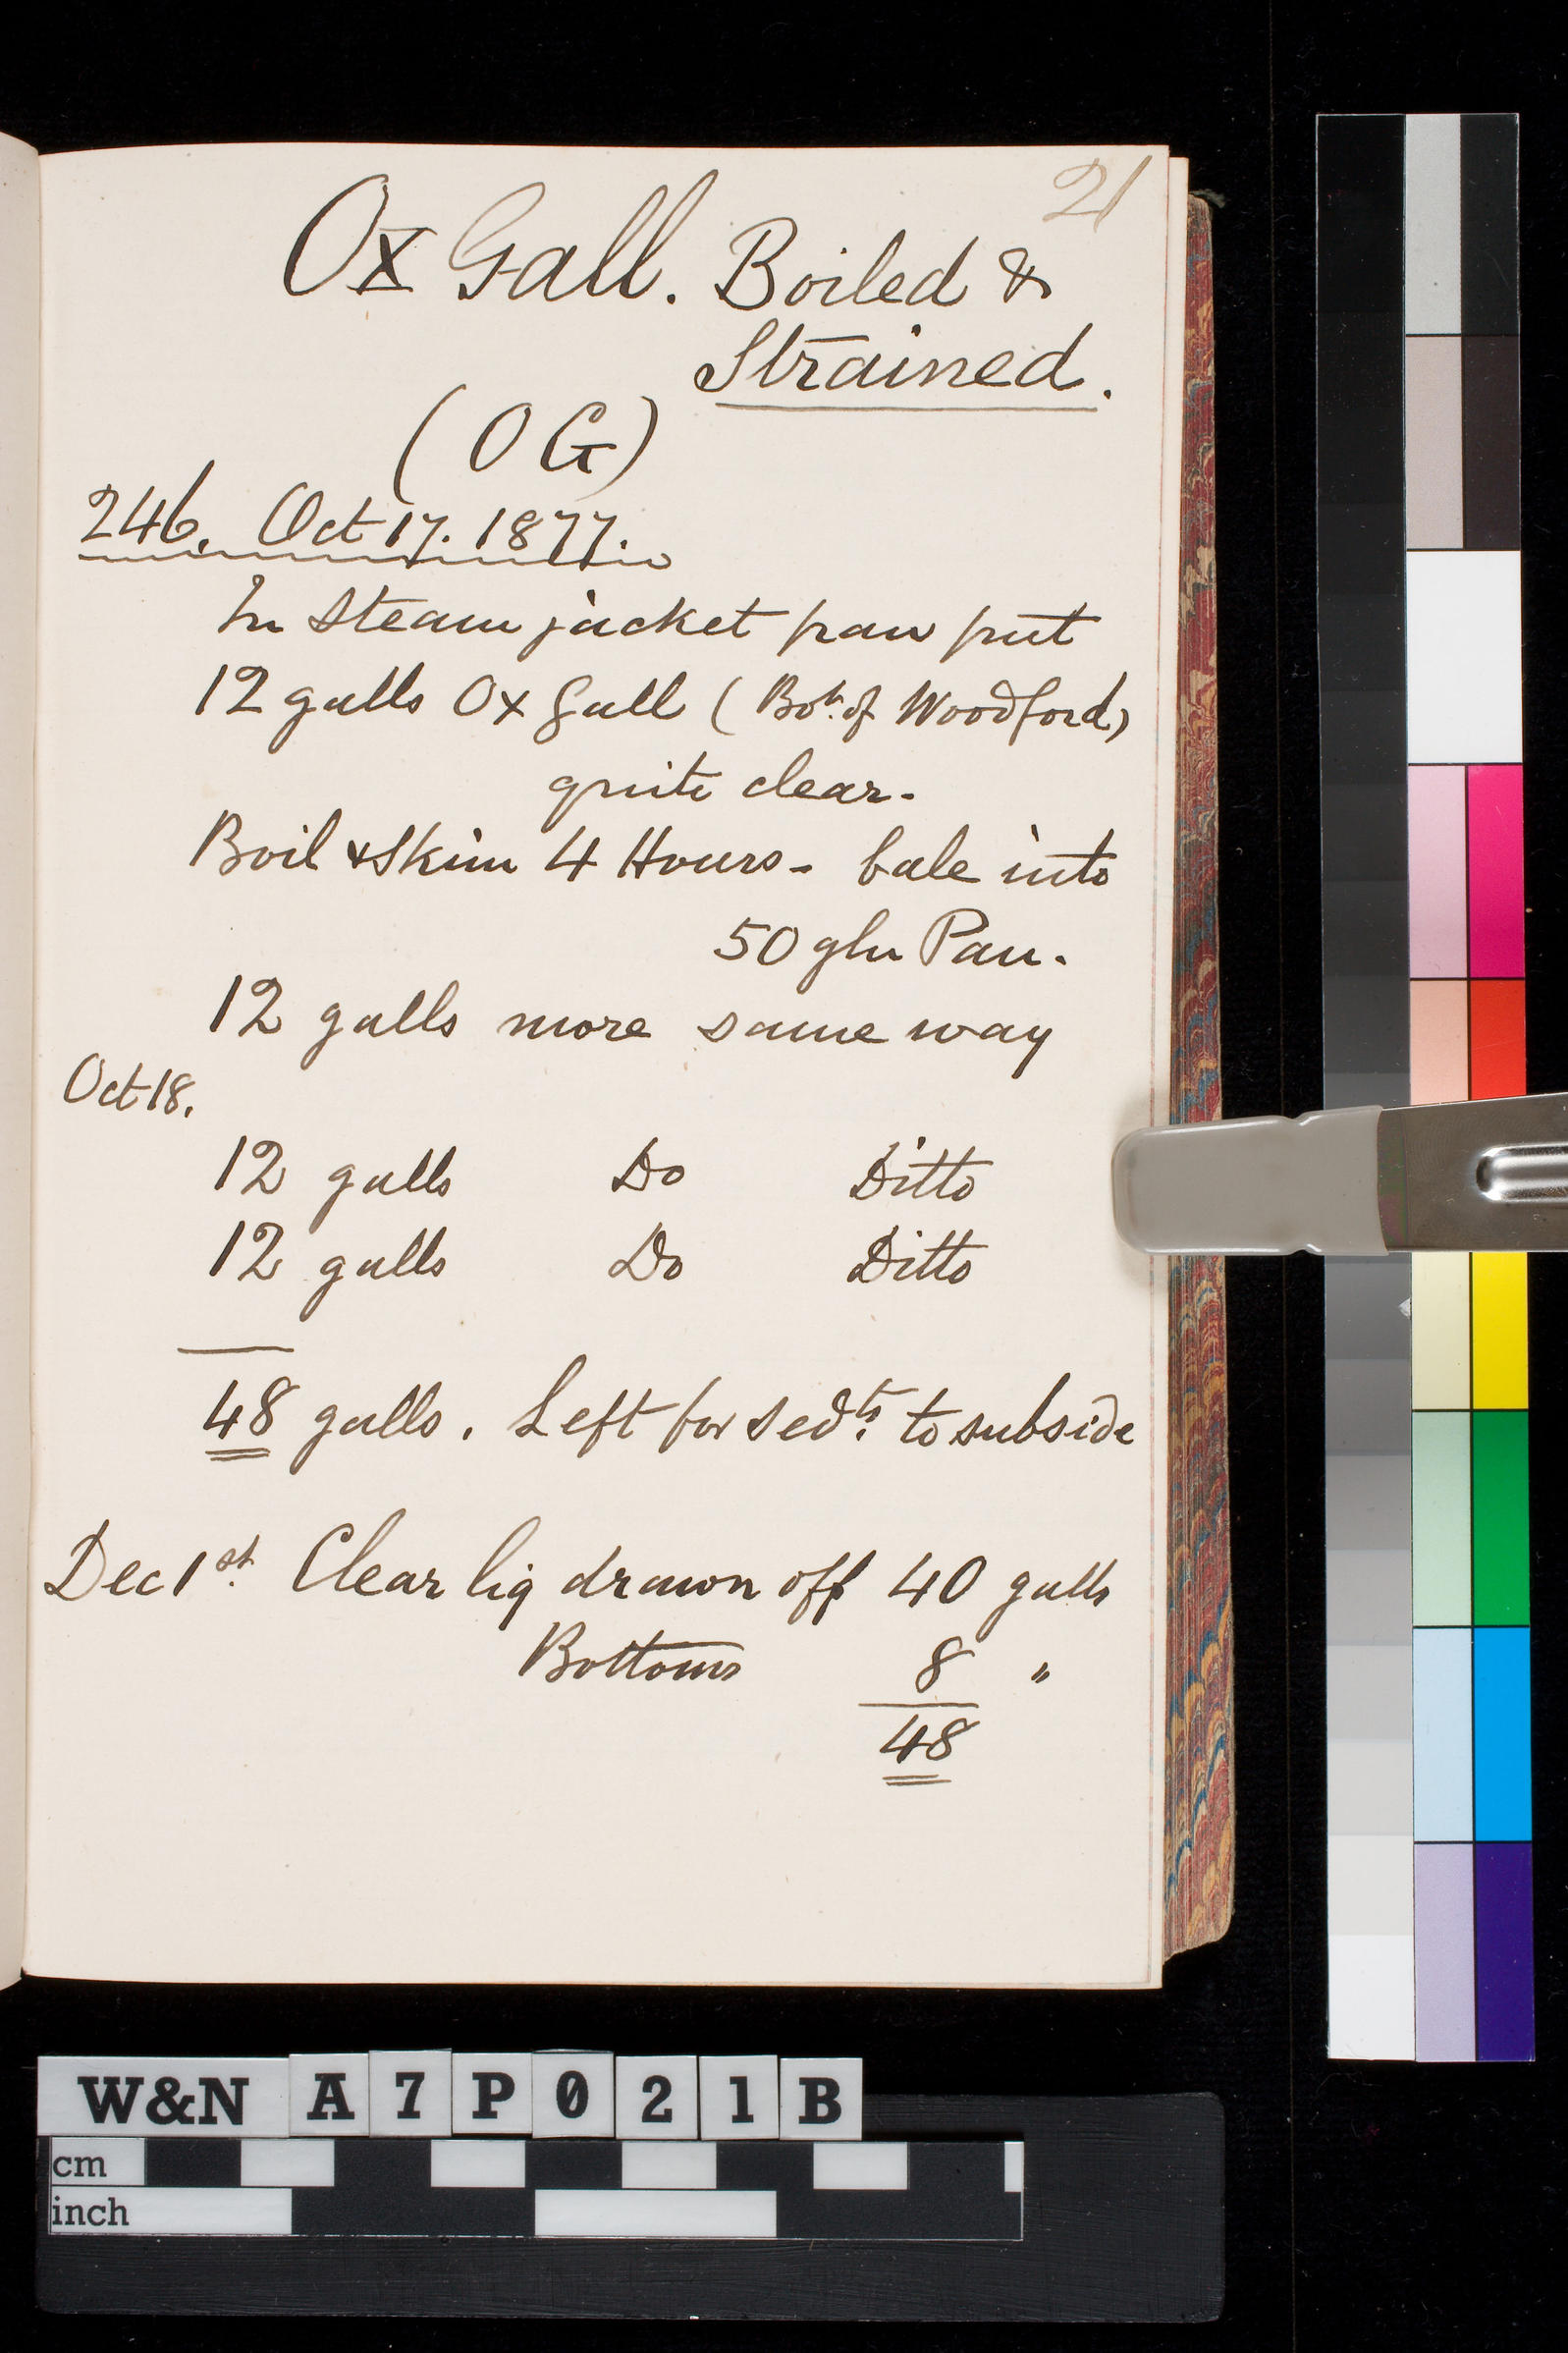 21
Ox Gall. Boiled &
Strained.
(OG)
246. Oct 17. 1877.
In Steam jacket pan put
12 galls Ox Gall (Bot. of Woodford)
quite clear.
Boil & Skim 4 Hours - bale into
50 gln Pan.
12 galls more same way
Oct 18.
12 galls Do Ditto
12 galls Do Ditto
48 galls. Left for sedts. to subside
Dec 1st. Clear liq drawn off 40 galls
Bottoms 8 "
48
W&N A7P021B
cm
inch